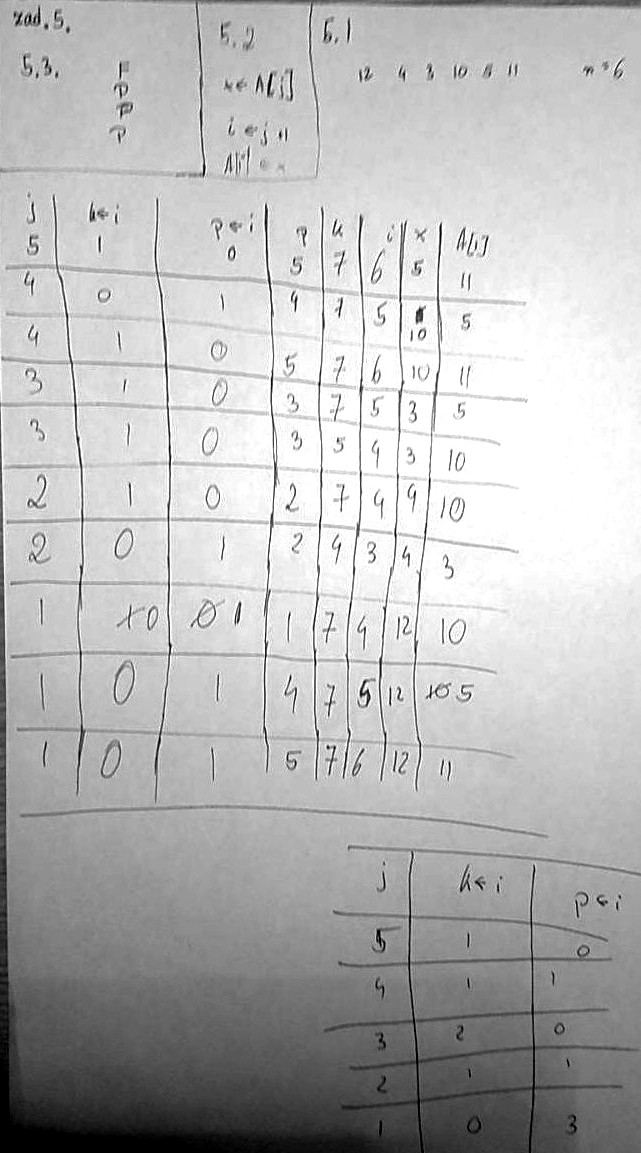 zad. 5.
5.3. F
P
P
P
5.2
x ← A[j]
i ← j+1
5.1
12 4 3 10 5 11 n=6
j k←i p←i p k i x A[i]
5 1 0 5 7 6 5 11
4 0 1 4 7 5 10 5
4 1 0 5 7 6 10 11
3 1 0 3 7 5 3 5
3 1 0 3 5 4 3 10
2 1 0 2 7 4 4 10
2 0 1 2 4 3 4 3
1 0 1 1 7 4 12 10
1 0 1 4 7 5 12 5
1 0 1 5 7 6 12 11
j k←i p←i
5 1 0
4 1 1
3 2 0
2 1 1
1 0 3